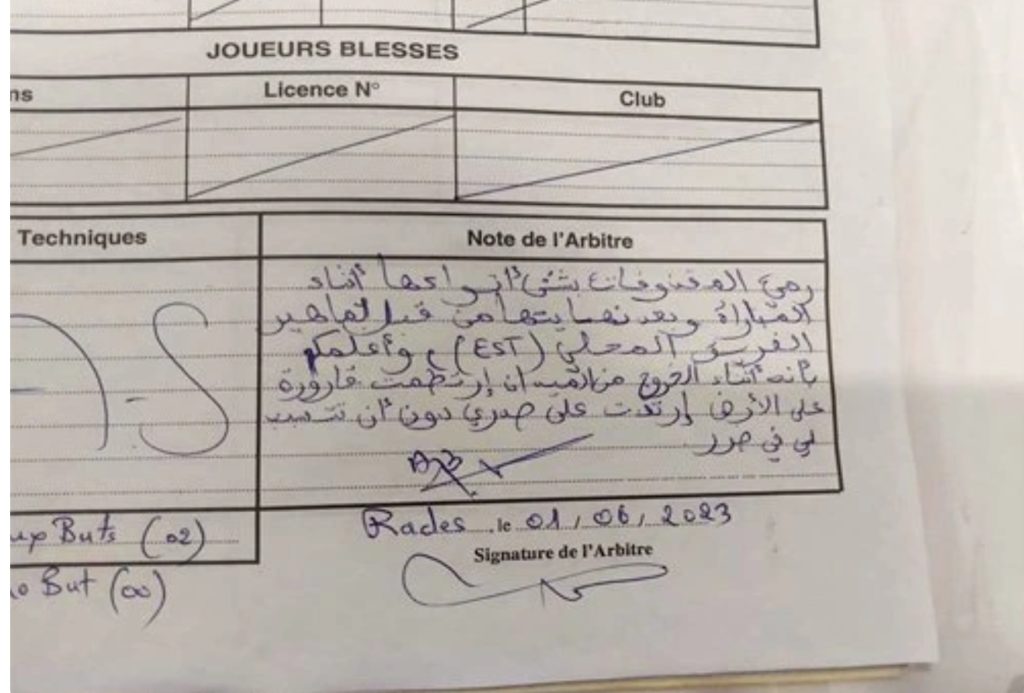 JOUEURS BLESSES
ns Licence N° Club
Techniques Note de l'Arbitre
رمي المقذوفات بشتى أنواعها أثناء
المباراة وبعد نهايتها من قبل جماهير
الفريق المحلي (EST) ، وأعلمكم
بأنه أثناء الخروج من الميدان إرتطمت قارورة
على الأرض إرتدّت على صدري دون أن تتسبب
لي في ضرر
Buts (02)
But (00)
Rades le 01, 06, 2023
Signature de l'Arbitre